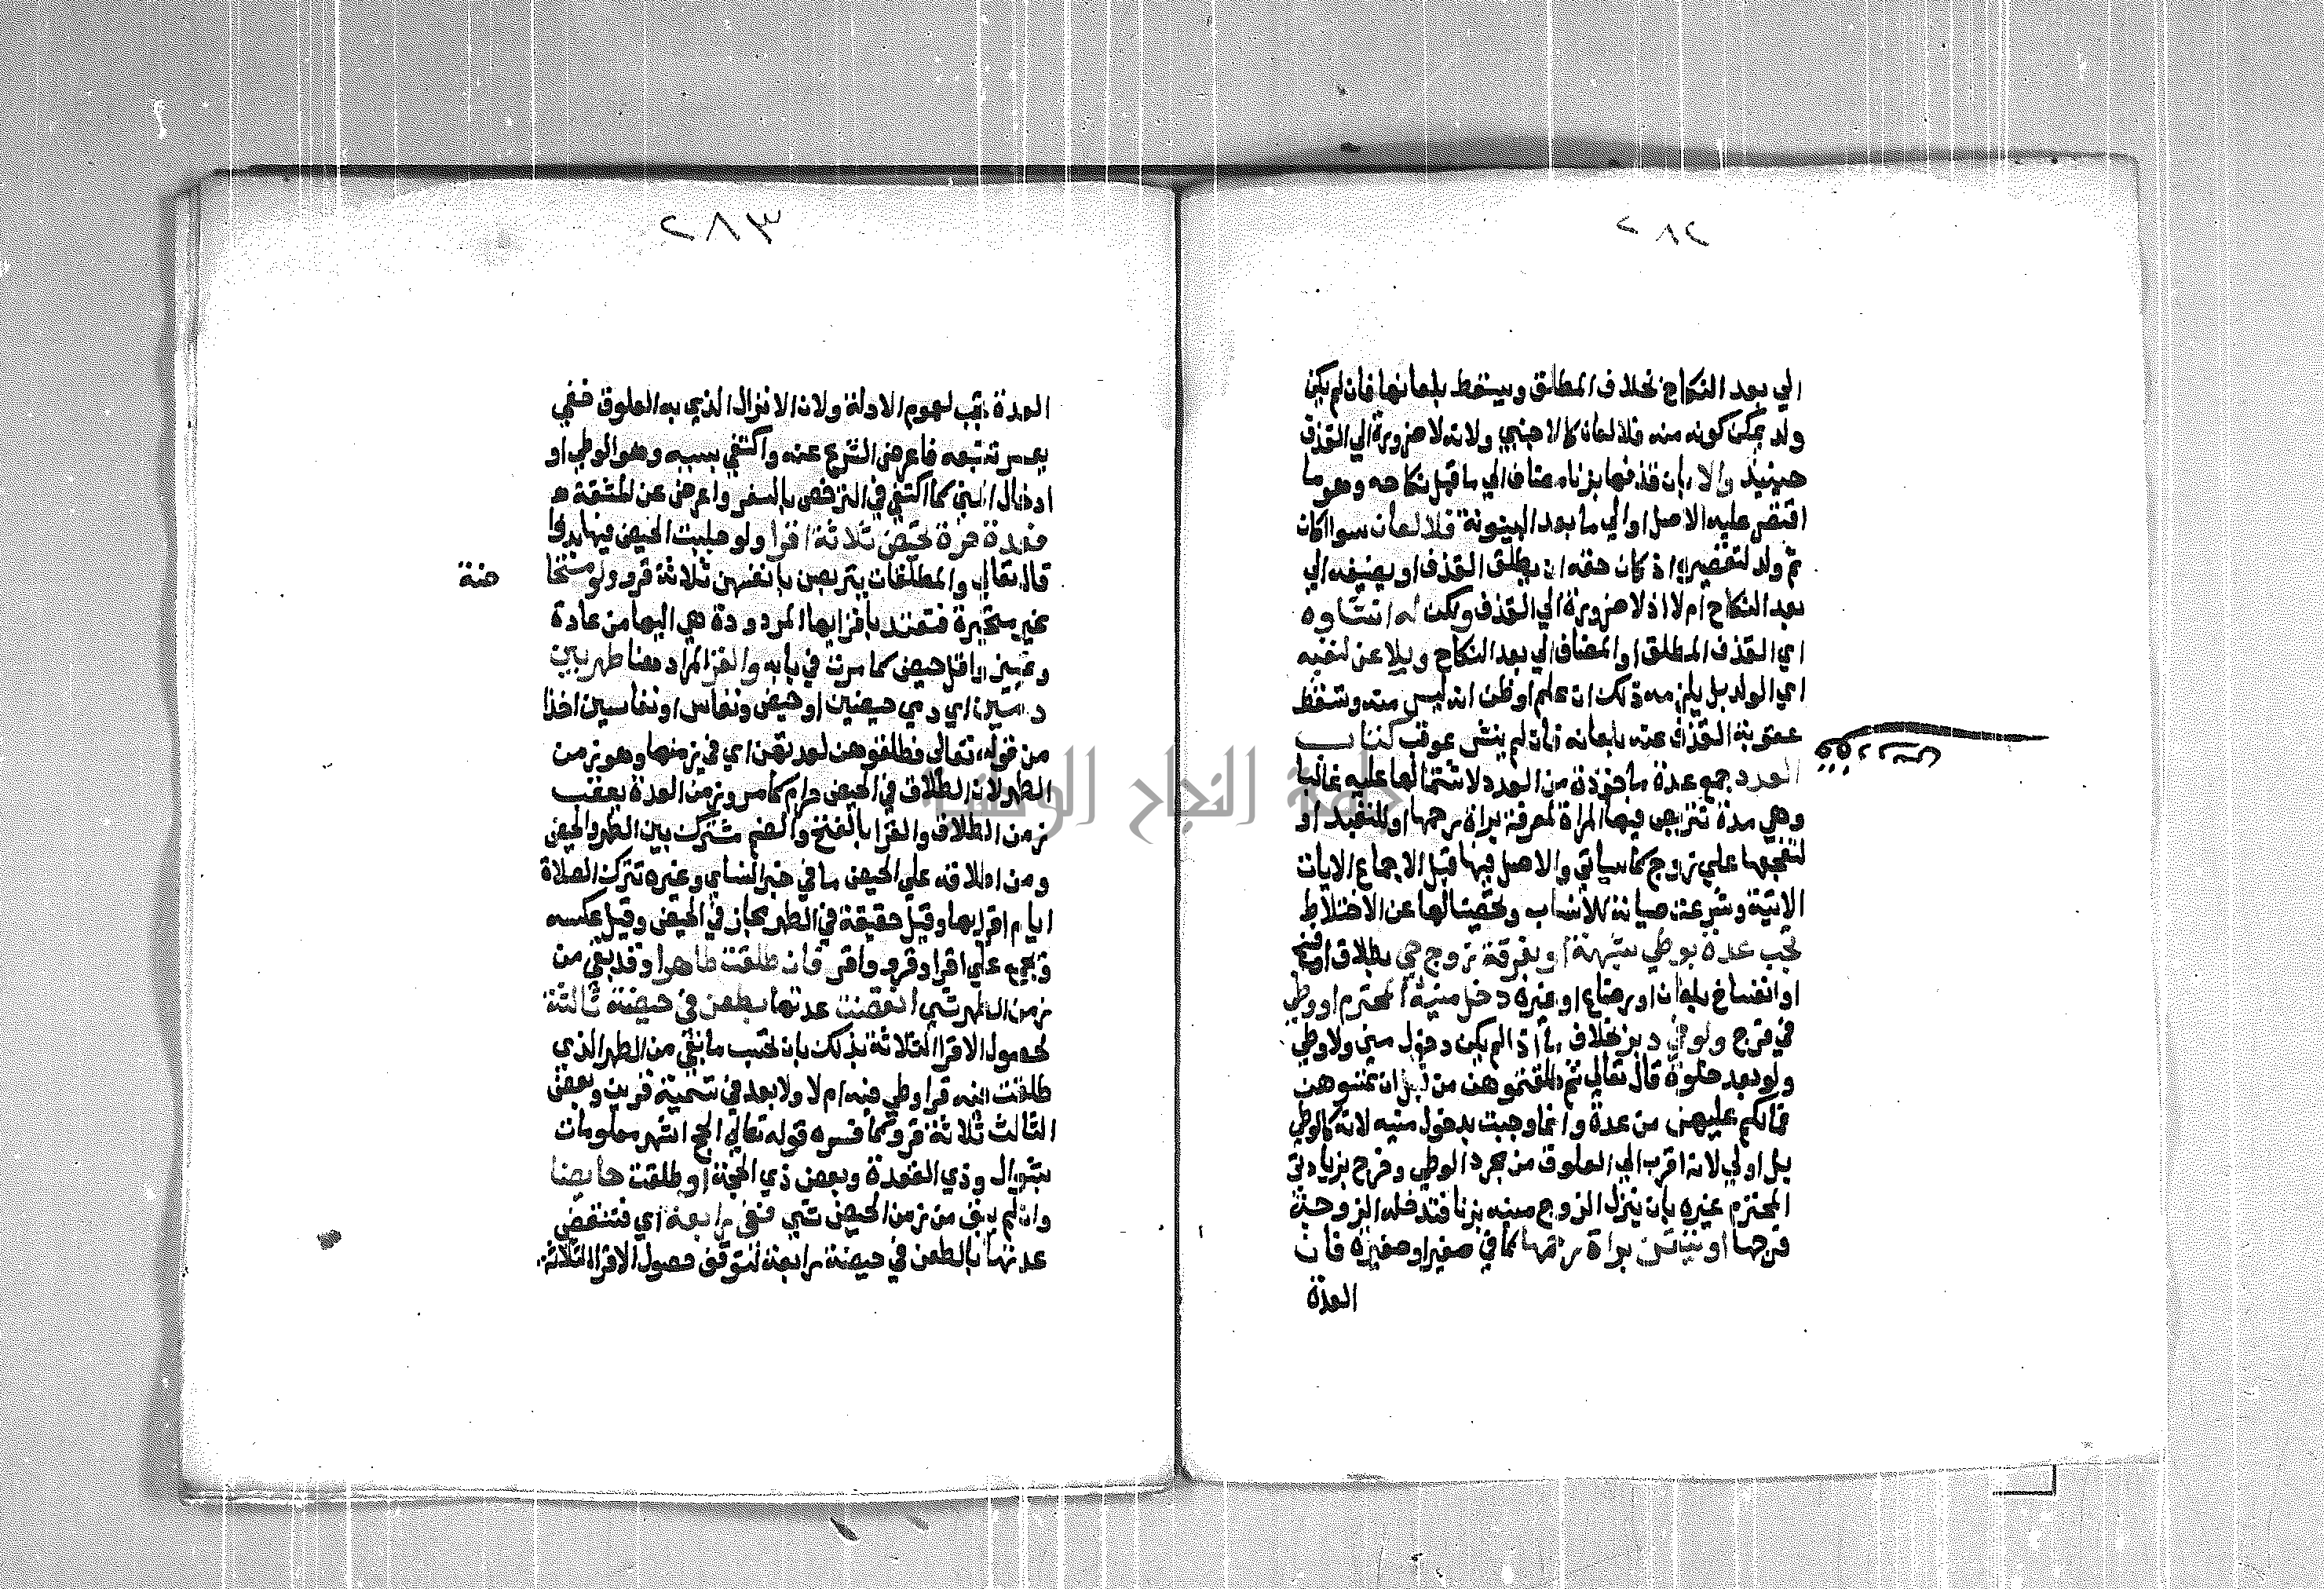 ٢٨٢
الي بعد النكاح بخلاف المطلق ويسقط بلعانها فان لم يكن
ولد يمكن كونه منه فلا لعان كالاجنبي ولانه لا ضرورة الي القذف
حينيذ والا بان قذفها بزنا مضاف الي ما قبل نكاحه وهو ما
اقتصر عليه الاصل او الي ما بعد البينونة فلا لعان سوا اكان
ثم ولد لتقصيره اذ كان حقه ان يطلق القذف او يضيفه الي
بعد النكاح ام لا اذ لا ضرورة الي القذف ويمكن له انشاوه
اي القذف المطلق او المضاف الي بعد النكاح ويلاعن لنفيه
اي الولد بل يلزمه ذلك ان علم او ظن انه ليس منه وتسقط
عقوبة القذف عنه بلعانه فان لم ينش عوقب كتاب
العدد جمع عدة ماخوذة من العدد لاشتمالها عليه غالبا
وهي مدة تتربص فيها المراة لمعرفة براة رحمها او للتعبد او
لتفجعها علي زوج كما سياتي والاصل فيها قبل الاجماع الايات
الاتية وشرعت صيانة للانساب وتحصينا لها عن الاختلاط
تجب عدة بوطي شبهة او بفرقة زوج حي بطلاق او فسخ
او انفساخ بلعان او رضاع او غيره دخل منيه المحترم او وطي
في فرج ولو في دبر بخلاف ما اذا لم يكن دخول مني ولا وطي
ولو بعد خلوة قال تعالي ثم طلقتموهن من قبل ان تمسوهن
فما لكم عليهن من عدة وانما وجبت بدخول منيه لانه كالوطي
بل اولي لانه اقرب الي العلوق من مجرد الوطي وخرج بزيادتي
المحترم غيره بان ينزل الزوج منيه بزنا فتدخله الزوجة
فرجها او بتيقن براة رحمها كما في صغير او صغيرة فان
العدة
٢٨٣
العدة تجب لعموم الادلة ولان الانزال الذي به العلوق خفي
يعسر تتبعه فاعرض الشرع عنه واكتفي بسببه وهو الوطي او
ادخال المني كما اكتفي في الترخص بالسفر واعرض عن المشقة
فعدة حرة تحيض ثلاثة اقرا ولو جلبت الحيض فيها بدوا
قال تعالي والمطلقات يتربصن بانفسهن ثلاثة قرو ولو مستحا
ضة
غير متحيرة فتعتد باقرايها المردودة هي اليها من عادة
وتمييز واقل حيض كما مرت في بابه والقر المراد هنا طهر بين
دمين اي دمي حيضين او حيض ونفاس او نفاسين اخذا
من قوله تعالي فطلقوهن لعدتهن اي في زمنها وهو زمن
الطهر لان الطلاق في الحيض حرام كما مر وزمن العدة يعقب
زمن الطلاق والقرا بالفتح والضم مشترك بين الطهر والحيض
ومن اطلاقه علي الحيض ما في خبر النساي وغيره تترك الصلاة
ايام اقرايها وقيل حقيقة في الطهر مجاز في الحيض وقيل عكسه
ويجمع علي اقرا وقرو واقر فان طلقت طاهرا وقد بقي من
زمن الطهر شي انقضت عدتها بطعن في حيضة ثالثة
لحصول الاقرا الثلاثة بذلك بان تحسب ما بقي من الطهر الذي
طلقت فيه قرا وطي فيه ام لا ولا بعد في تسمية قرين وبعض
الثالث ثلاثة قرو كما فسره قوله تعالي الحج اشهر معلومات
بشوال وذي القعدة وبعض ذي الحجة او طلقت حايضا
وان لم يبق من زمن الحيض شي ففي رابعة اي فتنقضي
عدتها بالطعن في حيضة رابعة لتوقف حصول الاقرا الثلاثة
جامعة النجاح الوطنية